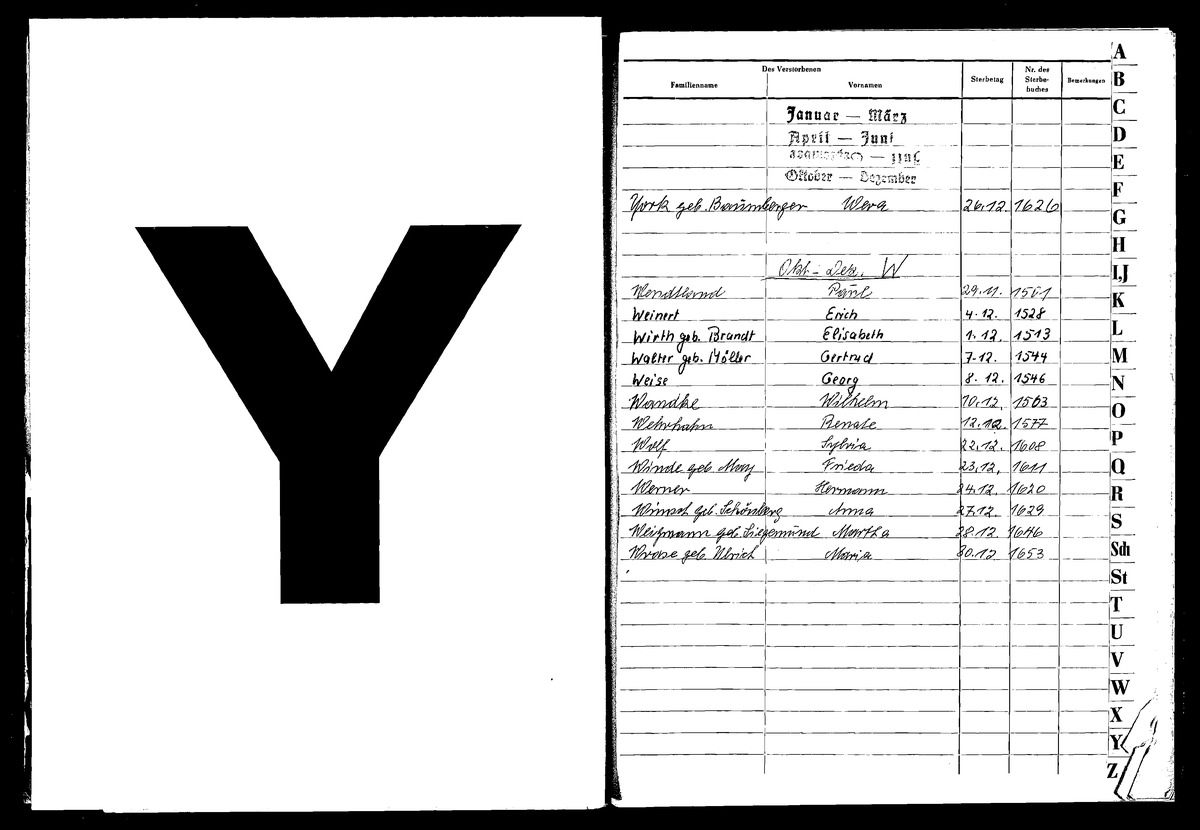 Y
Des Verstorbenen
Familienname Vornamen Sterbetag Nr. des Sterbe-buches Bemerkungen
Januar — März
April — Juni
Juli — September
Oktober — Dezember
York geb. Baumberger Wera 26.12. 1626
Okt - Dez. W
Wendtland Paul 29.11. 1501
Weinert Erich 4.12. 1528
Wirth geb. Brandt Elisabeth 1.12. 1513
Walter geb. Möller Gertrud 7.12. 1544
Weise Georg 8.12. 1546
Wandke Wilhelm 10.12. 1563
Wehrhahn Renate 12.12. 1577
Wolf Sylvia 22.12. 1608
Winde geb May Frieda 23.12. 1611
Werner Hermann 24.12. 1620
geb. Schönberg Anna 27.12. 1629
Weizmann geb. Siegemund Martha 28.12 1646
geb. Ulrich Maria 30.12 1653
A
B
C
D
E
F
G
H
I,J
K
L
M
N
O
P
Q
R
S
Sch
St
T
U
V
W
X
Y
Z